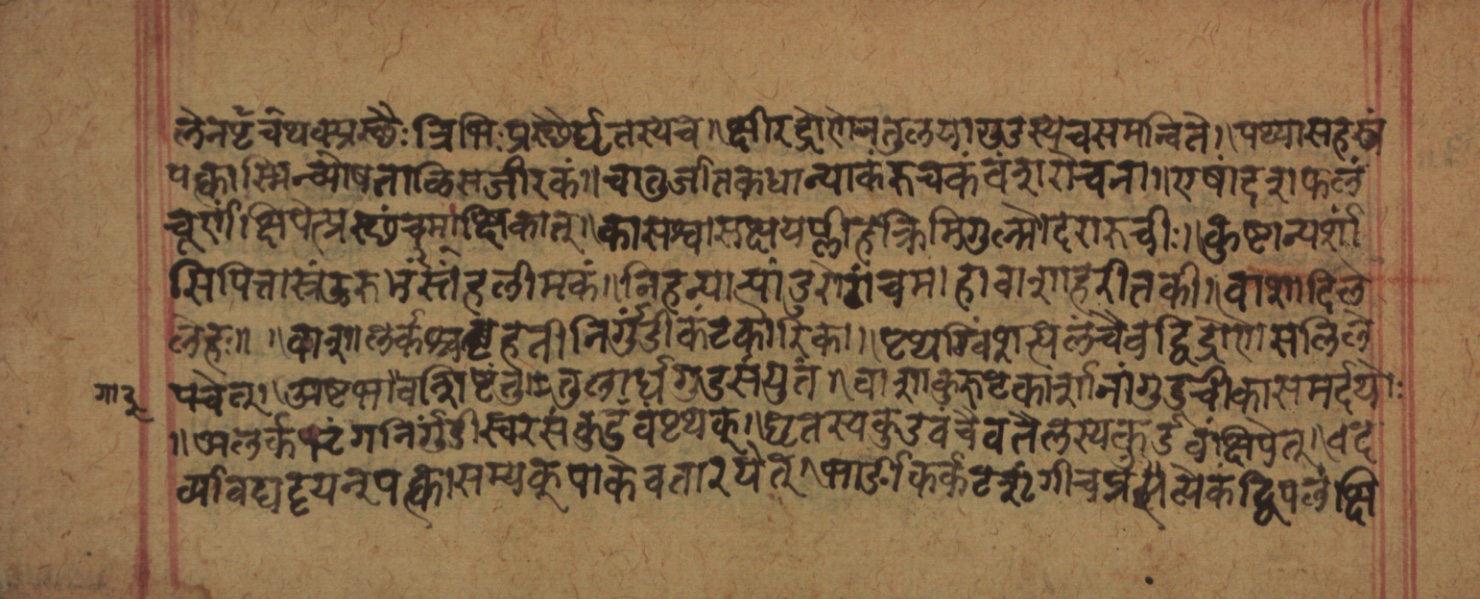 लेनष्टं चपृथक्प्रस्थैः त्रिभिः प्रस्थैर्घृतस्यच॥क्षीरद्रोणेनतुलयागुडस्यचसमन्वितै।पथ्यासहस्रं
पक्त्वास्मिन्व्योषतालिसजीरकं॥चातुर्जातकधान्याकंरुचकंवंशरोचना॥एषांदशफलं
चूर्णंक्षिपेत्प्रस्थंचमाक्षिकात्॥कासश्वासक्षयप्लीहक्रिमिगुल्मोदरारुचीः॥कुष्टान्यर्शां
सिपित्तास्रंऊरुस्तंभंहलीमकं॥निहन्यात्पांडुरोगंचमहावाशाहरीतकी॥वाशादिले
लेहः॥ ॥वाशालर्कश्चबृहतीनिर्गुंडीकंटकारिका॥पृथग्विंशत्पलंचैवद्विद्रोणेसलिले
पचेत्॥अष्टभावशिष्टंतुतुलार्धंगुडसंयुतं॥वाशाकुरुटकार्शानांगुडुचीकासमर्दयोः
॥अलर्क गनिर्गुंडीस्वरसंकुडवंपृथक्॥घृतस्यकुडवंचैवतैलस्यकुडवंक्षिपेत्॥वद
र्व्याविघट्टयन्पक्त्वासम्यक्पाकेवतारयेत्॥भार्ङीकर्कटशृंगीचप्रत्येकंद्विपलंक्षि